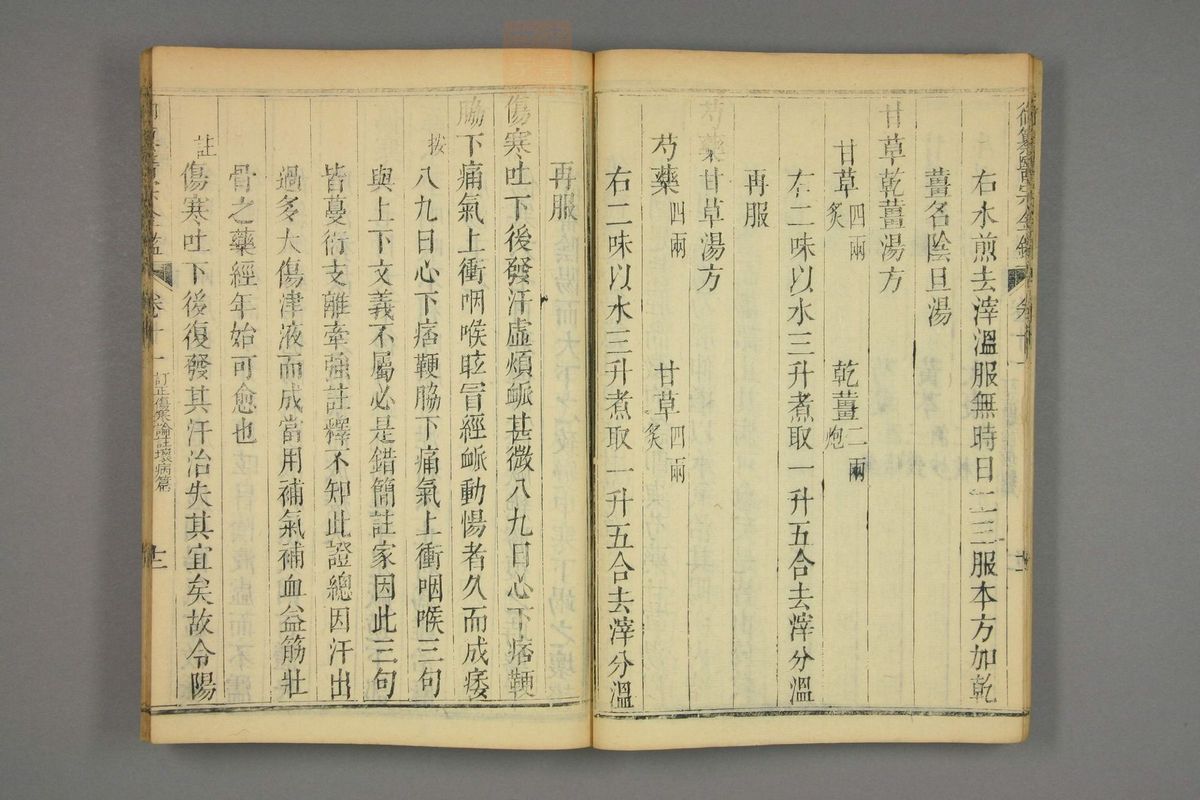 御纂醫宗金鑑 卷十一
右水煎去滓溫服無時日二三服本方加乾
薑名陰旦湯
甘草乾薑湯方
甘草四兩炙 乾薑二兩炮
右二味以水三升煮取一升五合去滓分溫
再服
芍藥甘草湯方
芍藥四兩 甘草四兩炙
右二味以水三升煮取一升五合去滓分溫
再服
傷寒吐下後發汗虛煩脈甚微八九日心下痞鞕
脇下痛氣上衝咽喉眩冒經脈動惕者久而成痿
按 八九日心下痞鞕脇下痛氣上衝咽喉三句
與上下文義不屬必是錯簡註家因此三句
皆蔓衍支離牽強註釋不知此證總因汗出
過多大傷津液而成當用補氣補血益筋壯
骨之藥經年始可愈也
註 傷寒吐下後復發其汗治失其宜矣故令陽
卷十一 訂正傷寒論註壞病篇 十二